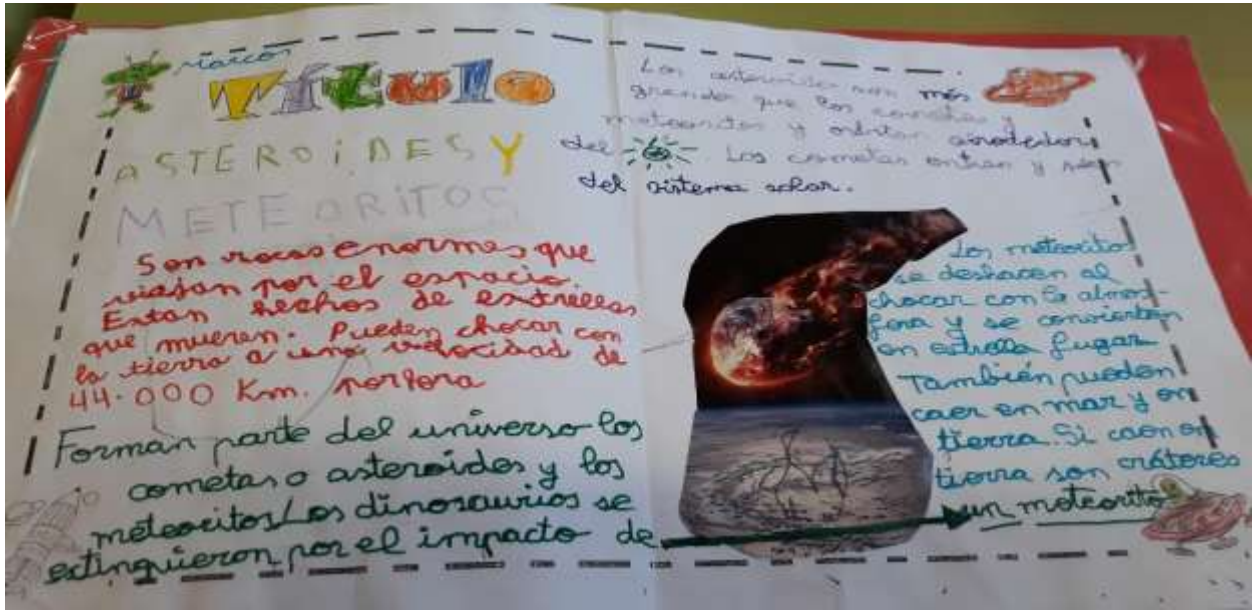 Marcos
Título
ASTEROIDES Y
METEORITOS
Son rocas enormes que
viajan por el espacio.
Estan hechos de estrellas
que mueren. Pueden chocar con
la tierra a una velocidad de
44.000 Km. por hora
Forman parte del universo los
cometas o asteroides y los
meteoritos Los dinosaurios se
extinguieron por el impacto de
un meteorito
Los asteroides son más
grandes que los cometas y
meteoritos y orbitan airededor
del
. Los cometas entran y
del sistema solar.
Los meteoritos
se deshacen al
chocar con la atmos-
fera y se convierten
en estrella fugar
También pueden
caer en mar y en
tierra. Si caen en
tierra son cráteres